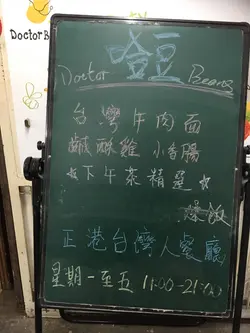 Doctor B
噔豆
Doctor Beans
台灣牛肉面
鹹酥雞 小香腸
☆下午茶精選☆
燥飯
正港台灣人餐廳
星期一至五 11:00-21:00